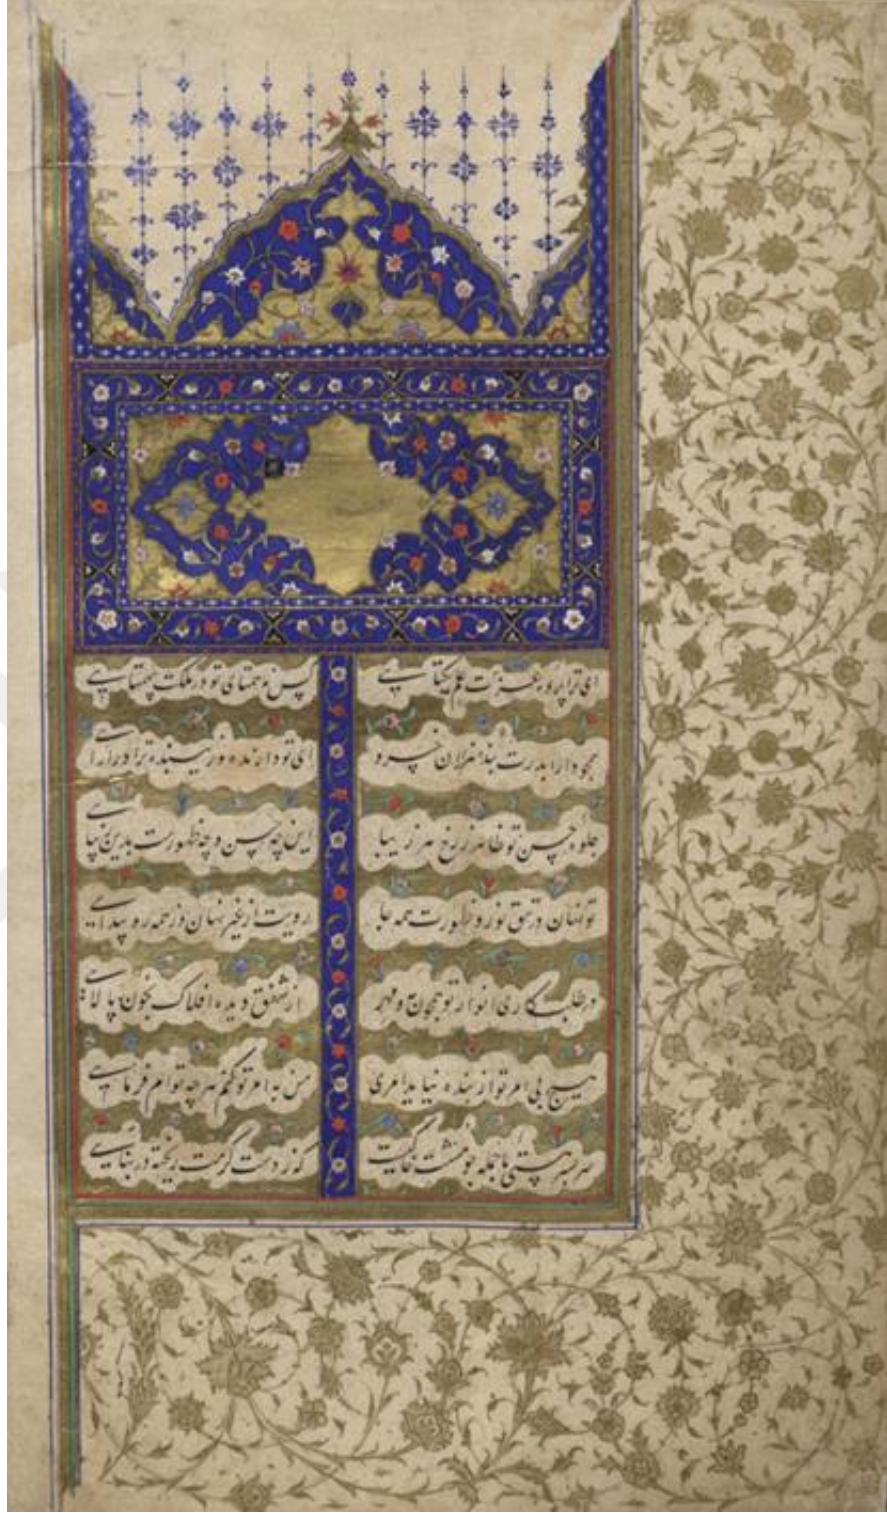 ای ترا پرده عزت علم یکتایی
کس نه همتای تو در ملکت بی همتایی
همچو دارا بدرت بنده هزاران خسرو
ای تو دارنده و زیبنده ترا دارایی
جلوه حسن تو ظاهر ز رخ هر زیبا
این چه حسن و چه ظهورست بدین زیبایی
تو نهان در تتق نور و ظهورت همه جا
رویت از غیر نهان وز همه ره پیدایی
در طلب کاری انوار تو
از شفق دیده افلاک بخون پالایی
هیچ بی امر تو از بنده نیاید امری
من به امر تو کنم هرچه توام فرمایی
سر بسر هستی ما جمله چو مشت خاکیست
که ز دست کرمت ریخته در